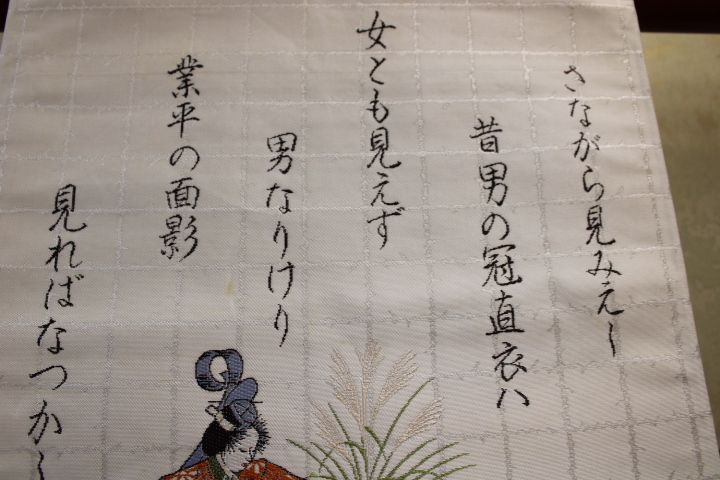 さながら見みえし
昔男の冠直衣ハ
女とも見えず
男なりけり
業平の面影
見ればなつかし